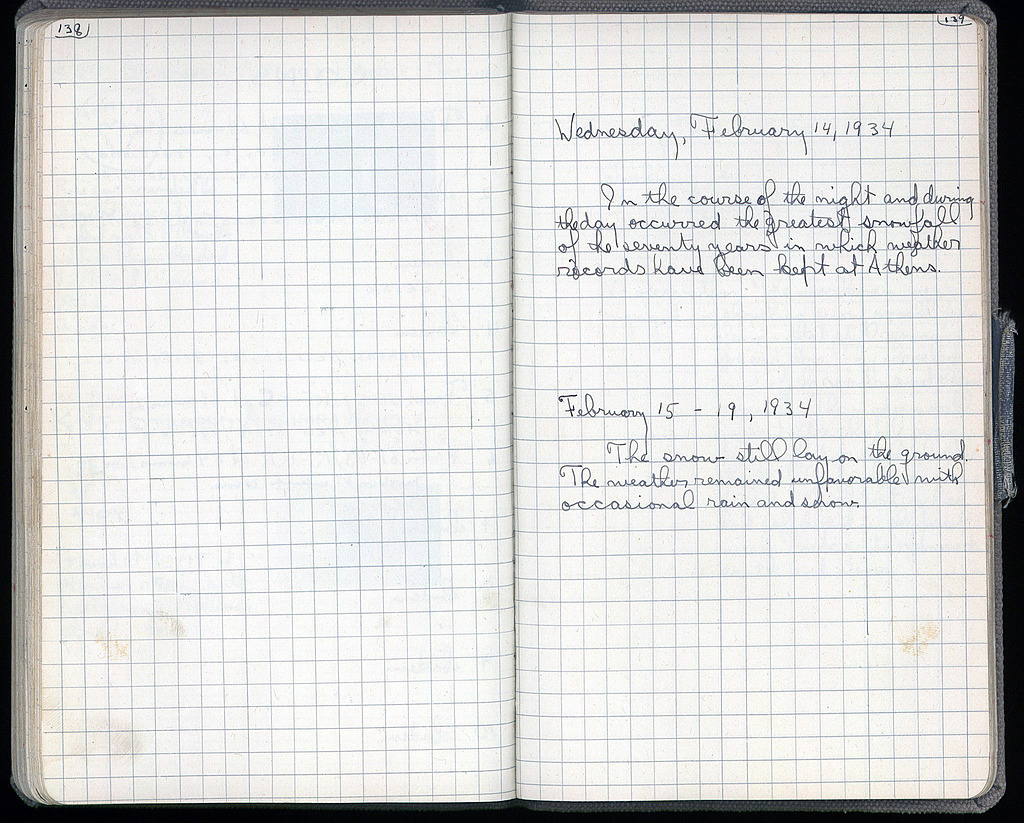 138
139
Wednesday, February 14, 1934
In the course of the night and during
the day occurred the greatest snowfall
of the seventy years in which weather
records have been kept at Athens.
February 15 - 19, 1934
The snow still lay on the ground.
The weather remained unfavorable with
occasional rain and snow.